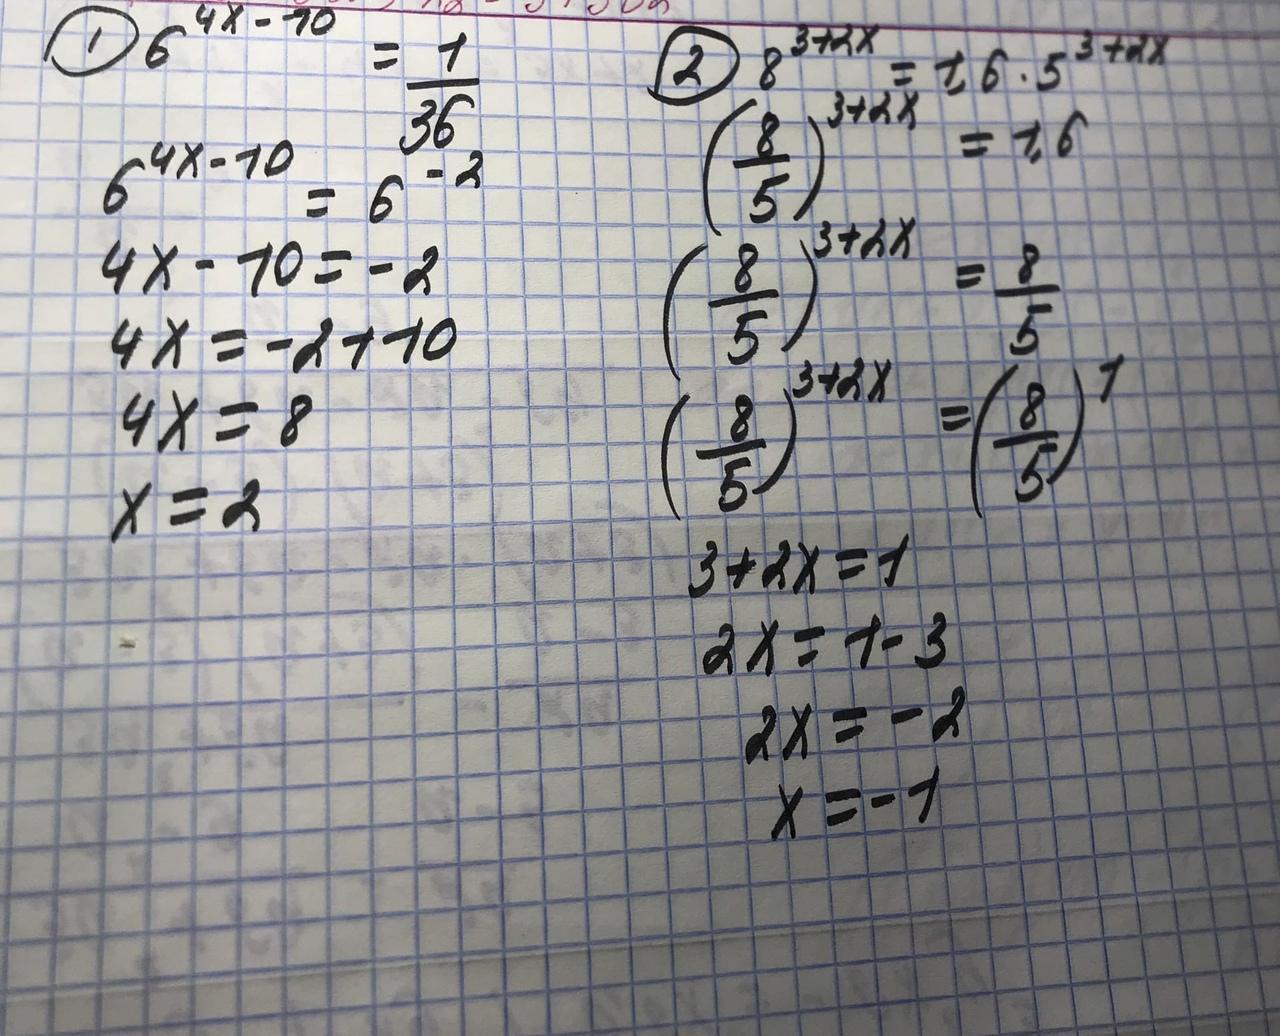 ① 6^(4x-10) = 1/36
6^(4x-10) = 6^(-2)
4x - 10 = -2
4x = -2+10
4x = 8
x = 2
② 8^(3+2x) = 1,6 · 5^(3+2x)
(8/5)^(3+2x) = 1,6
(8/5)^(3+2x) = 8/5
(8/5)^(3+2x) = (8/5)^1
3+2x = 1
2x = 1-3
2x = -2
x = -1